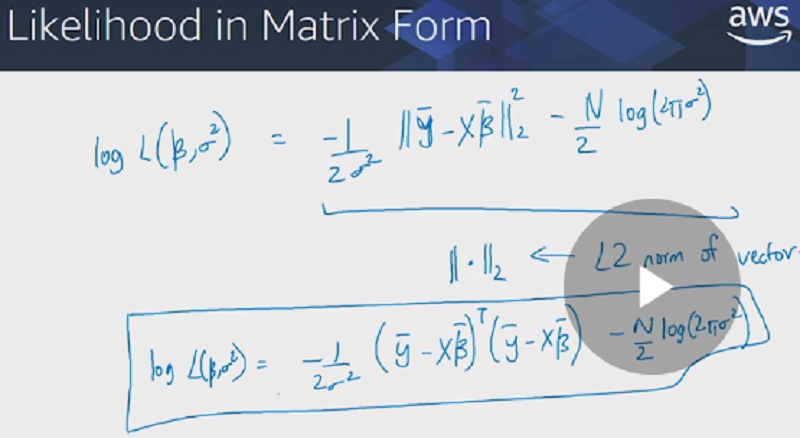 Likelihood in Matrix Form
aws
log L(β,σ²) = -1/2σ² ||ȳ - Xβ̄||₂² - N/2 log(2πσ²)
||·||₂ ← L2 norm of vector.
log L(β,σ²) = -1/2σ² (ȳ - Xβ̄)ᵀ(ȳ - Xβ̄) - N/2 log(2πσ²)